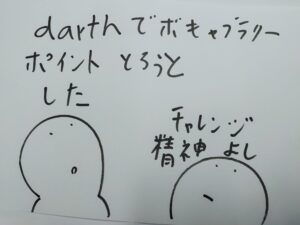 darthでボキャブラリー
ポイントとろうと
した
チャレンジ
精神よし